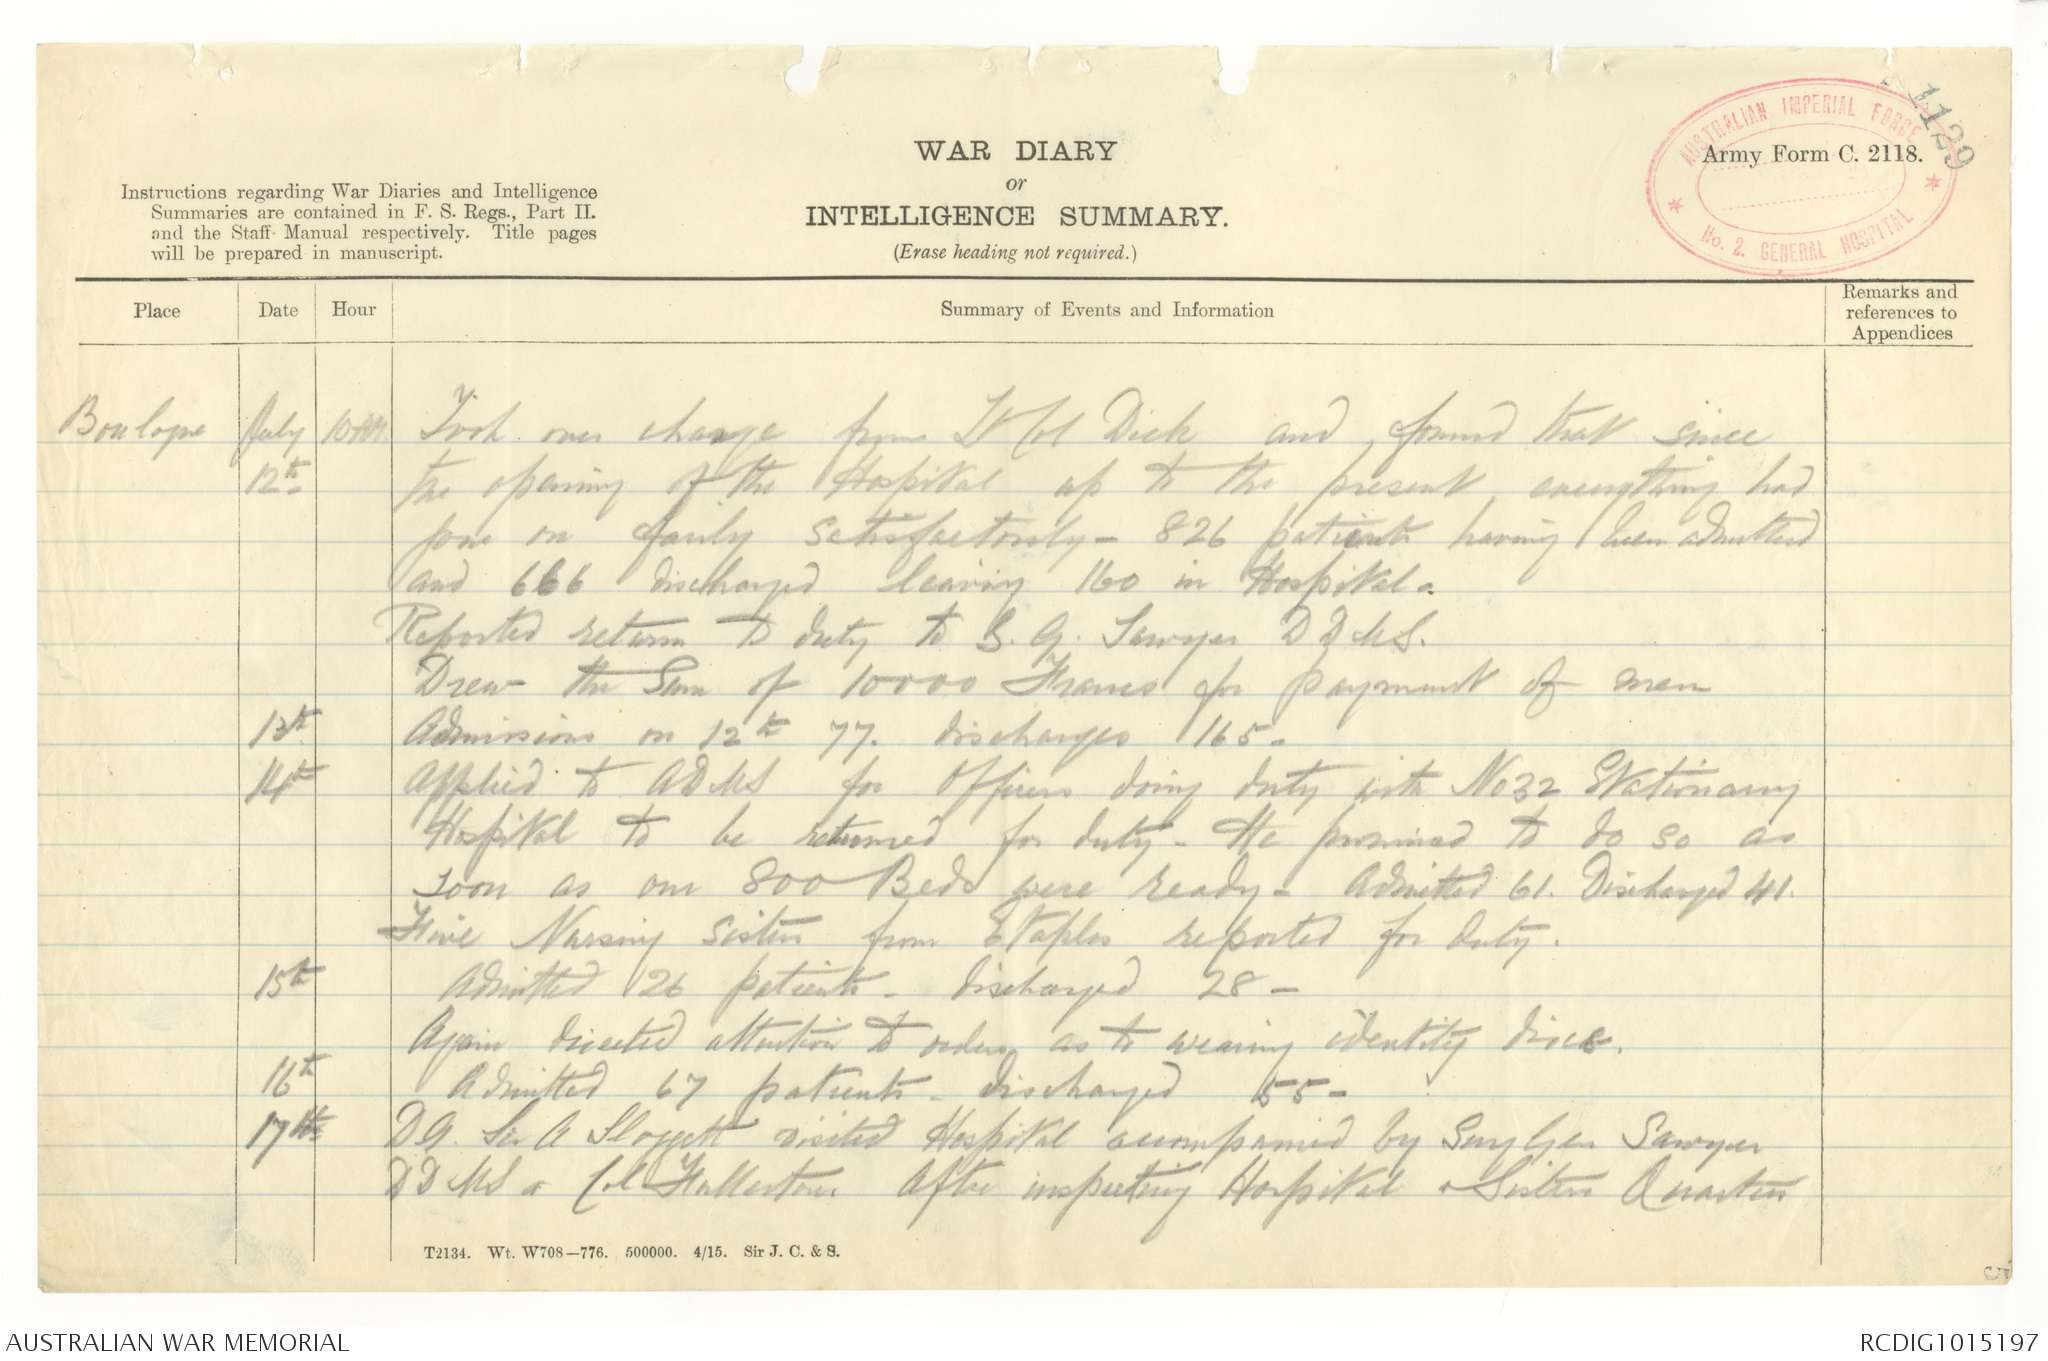 1129
AUSTRALIAN IMPERIAL FORCE
No. 2. GENERAL HOSPITAL
Army Form C. 2118.
WAR DIARY
or
INTELLIGENCE SUMMARY.
(Erase heading not required.)
Instructions regarding War Diaries and Intelligence
Summaries are contained in F. S. Regs., Part II.
and the Staff Manual respectively. Title pages
will be prepared in manuscript.
Place Date Hour Summary of Events and Information Remarks and references to Appendices
Boulogne July 10AM. Took over charge from Lt Col Dick and found that since
12th the opening of the Hospital up to the present everything had
gone on fairly satisfactorily - 826 patients having been admitted
and 666 discharged leaving 160 in Hospital.
Reported return to duty to S. G. Sawyer DDMS.
Drew the Sum of 10000 Francs for payment of men
13th Admissions on 12th 77. discharges 165-
14th Applied to ADMS for Officers doing duty with No 32 Stationary
Hospital to be returned for duty - He promised to do so as
soon as our 800 Beds were ready - Admitted 61. Discharged 41.
Five Nursing Sisters from Etaples reported for duty.
15th Admitted 26 patients - discharged 28 -
Again directed attention to orders as to wearing identity discs.
16th Admitted 67 patients - discharged 55 -
17th D.G. Sir A Sloggett visited Hospital accompanied by Surg Gen Sawyer
DDMS & Col Fullerton After inspecting Hospital & Sisters Quarters
T2134. Wt. W708-776. 500000. 4/15. Sir J. C. & S.
AUSTRALIAN WAR MEMORIAL
RCDIG1015197